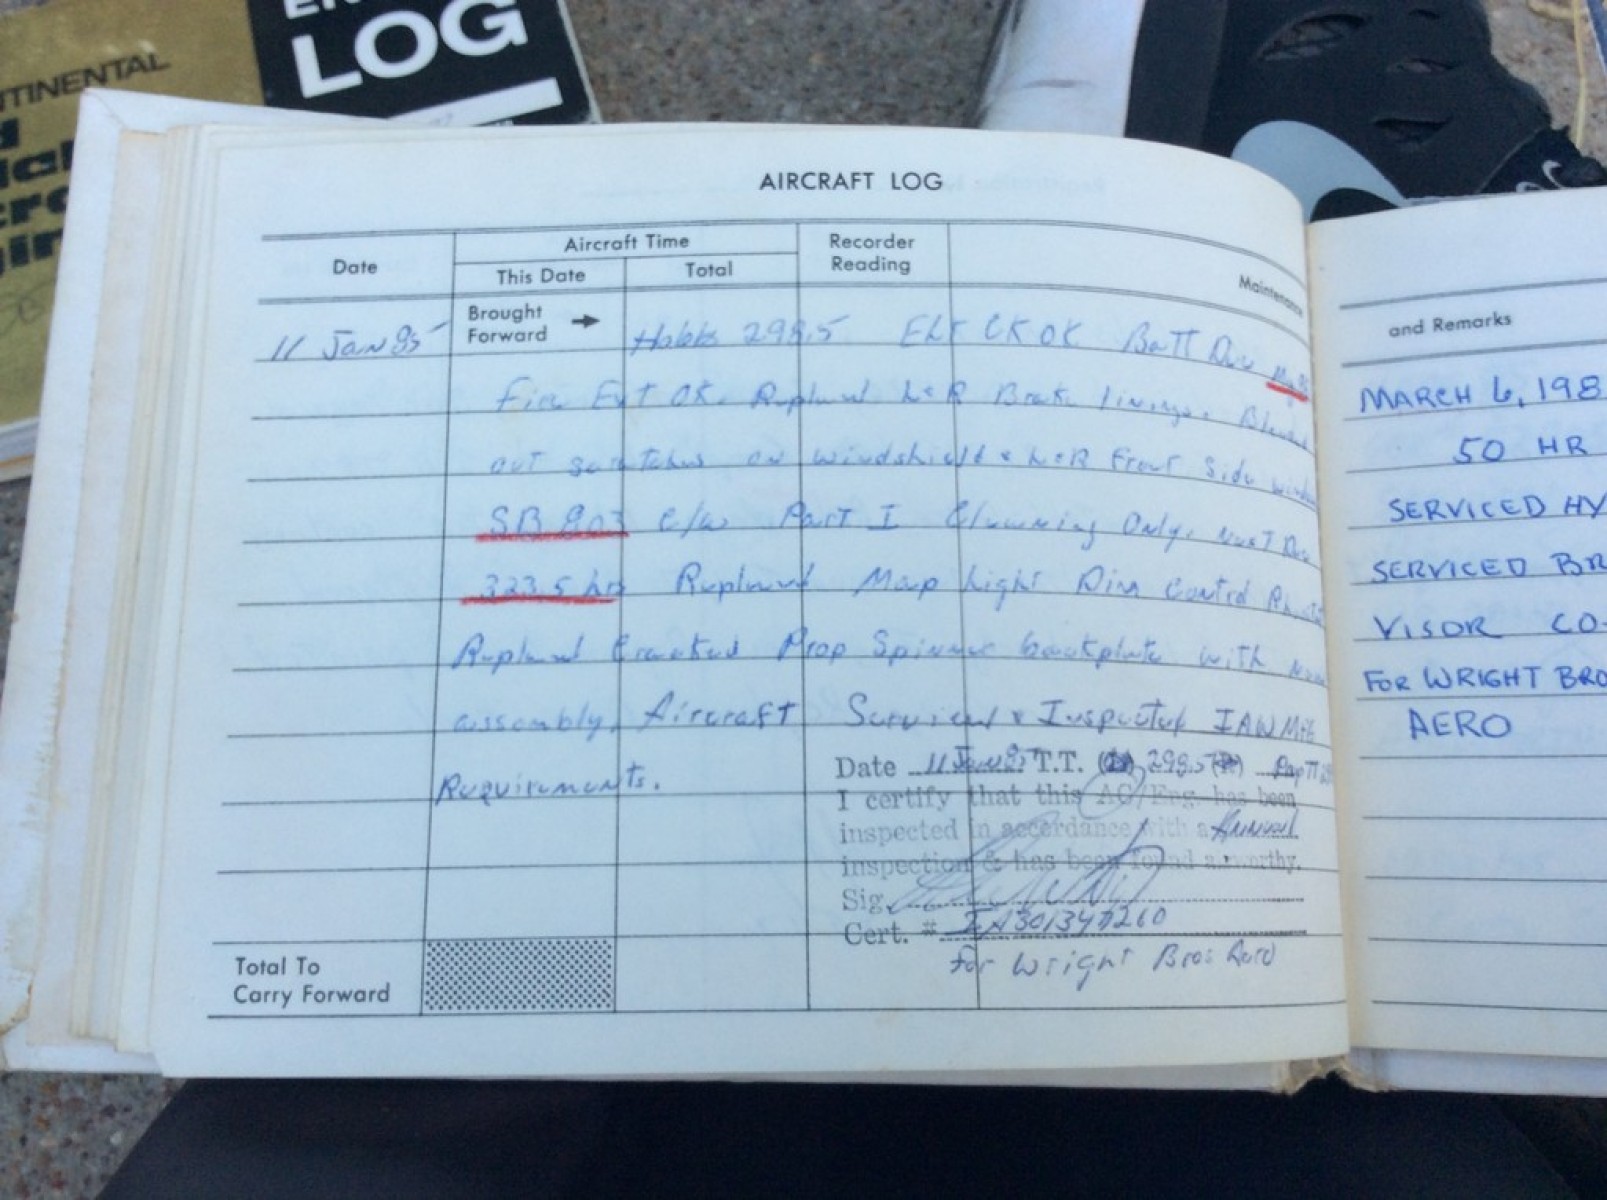 TINENTAL
LOG
AIRCRAFT LOG
Date
Aircraft Time
This Date
Total
Recorder
Reading
Maintenance
Brought
Forward
11 Jan 85 Hobbs 298.5 ELT CK OK Batt Due
Fire Ext OK. Replaced L&R Brake linings.
out scratches on windshield & L&R Front Side
SB 803 C/W Part I Cleaning Only. Next Due
323.5 hrs Replaced Map Light Dim Control
Replaced Cracked Prop Spinner backplate with new
assembly. Aircraft Serviced & Inspected IAW Mfg
Requirements.
Date 11 Jan 85 T.T. 298.5
I certify that this AC/Eng. has been
inspected in accordance with a Annual
inspection & has been found airworthy.
Sig.
Cert. # IA301347260
for Wright Bros Aero
Total To
Carry Forward
and Remarks
MARCH 6, 198
50 HR
SERVICED HY
SERVICED BR
VISOR CO
FOR WRIGHT BRO
AERO